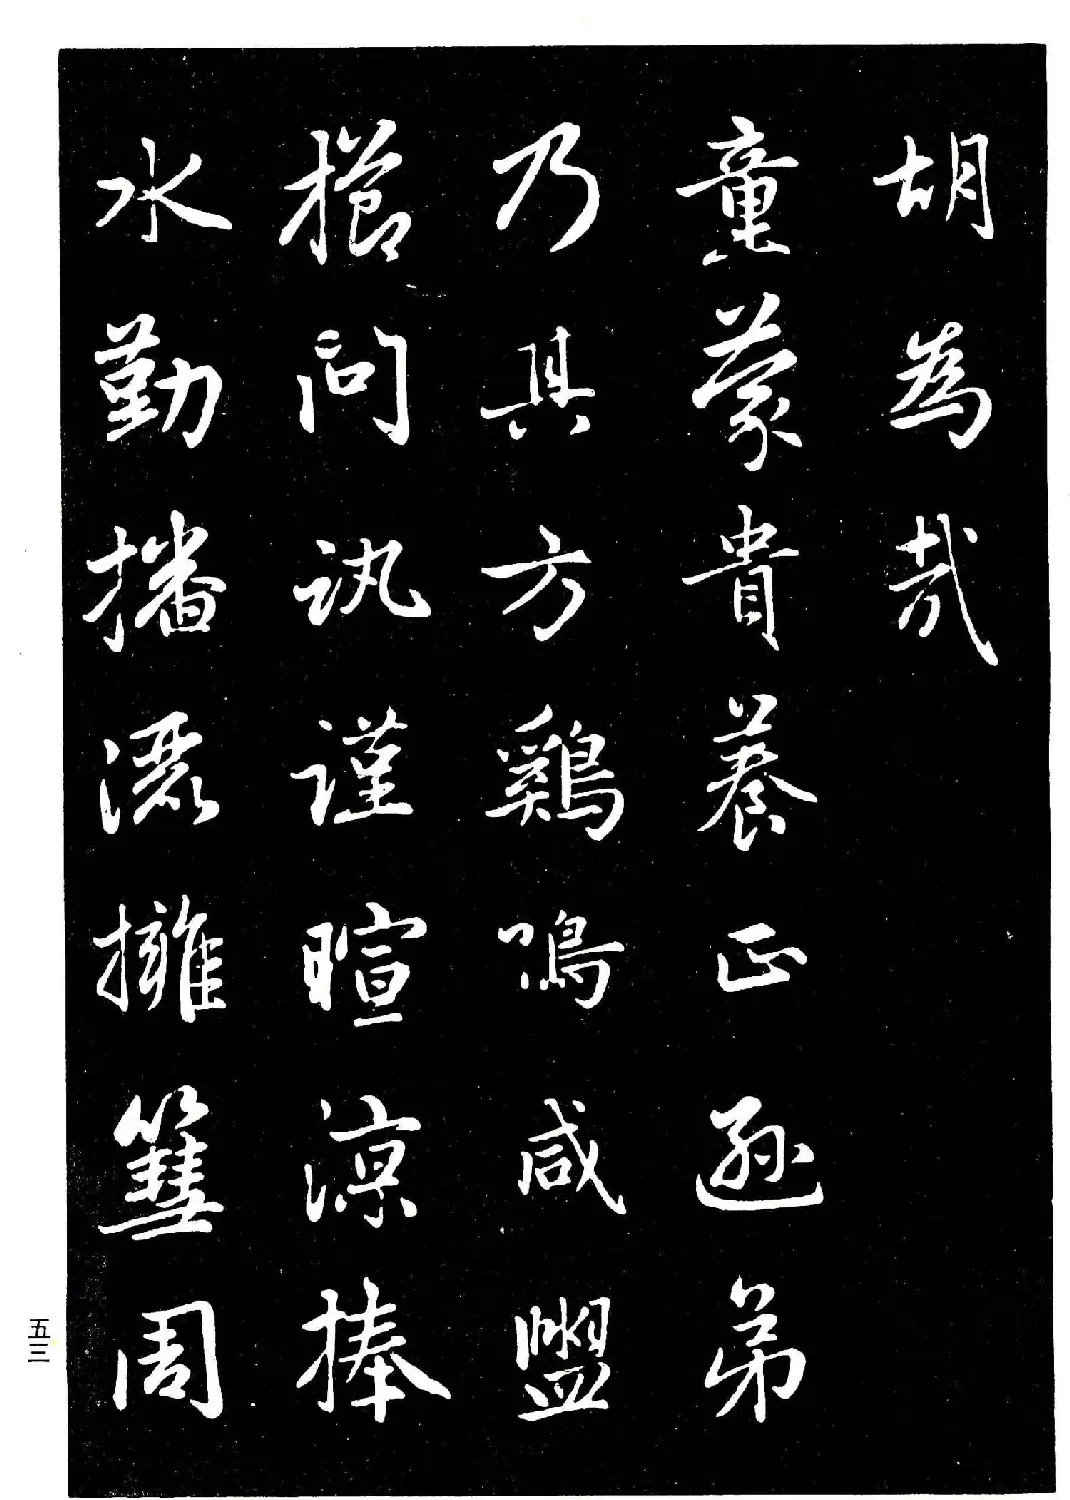 胡為哉
童蒙貴養正遜弟
乃其方鷄鳴咸盥
櫛問訊謹暄涼捧
水勤播灑擁篲周
五三